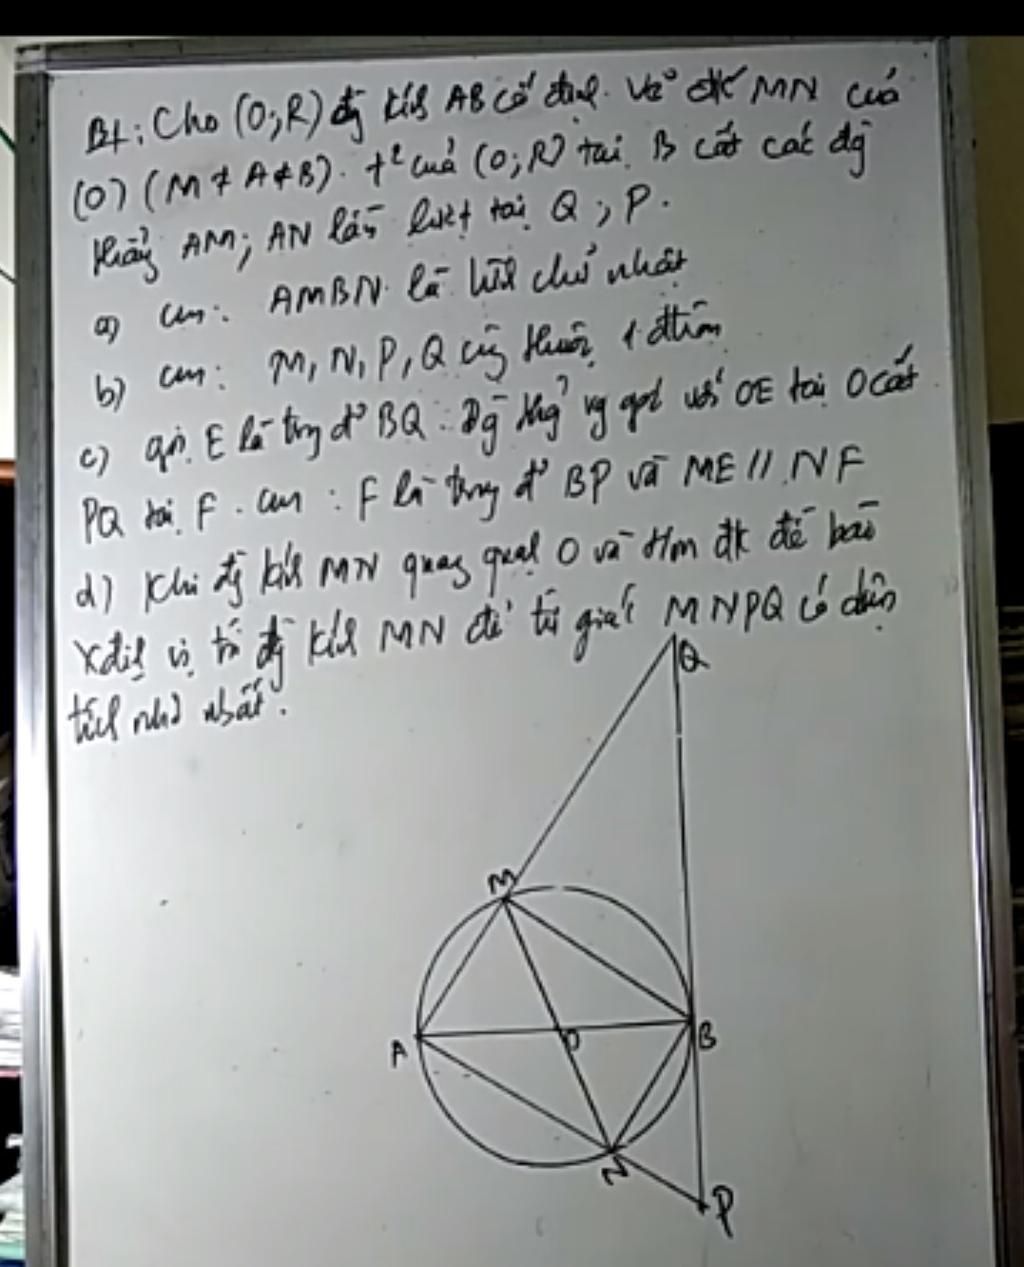 B1: Cho (O;R) đg kíh AB cố định. Vẽ đk MN của
(O) (M ≠ A ≠ B). t² của (O;R) tại B cắt các đg
thẳng AM; AN lần lượt tại Q; P.
a) cm: AMBN là hìh chữ nhật
b) cm: M, N, P, Q cùg thuộc 1 đtròn
c) gọi E là trg đ' BQ. Đg thg' vg góc với OE tại O cắt
PQ tại F. cm: F là trug đ' BP và ME // NF
d) Khi đg kíh MN quay quah O và t/m đk đề bài
xđịh vị trí đg kíh MN để tứ giác MNPQ có diện
tích nhỏ nhất.
Q
M
A
O
B
N
P